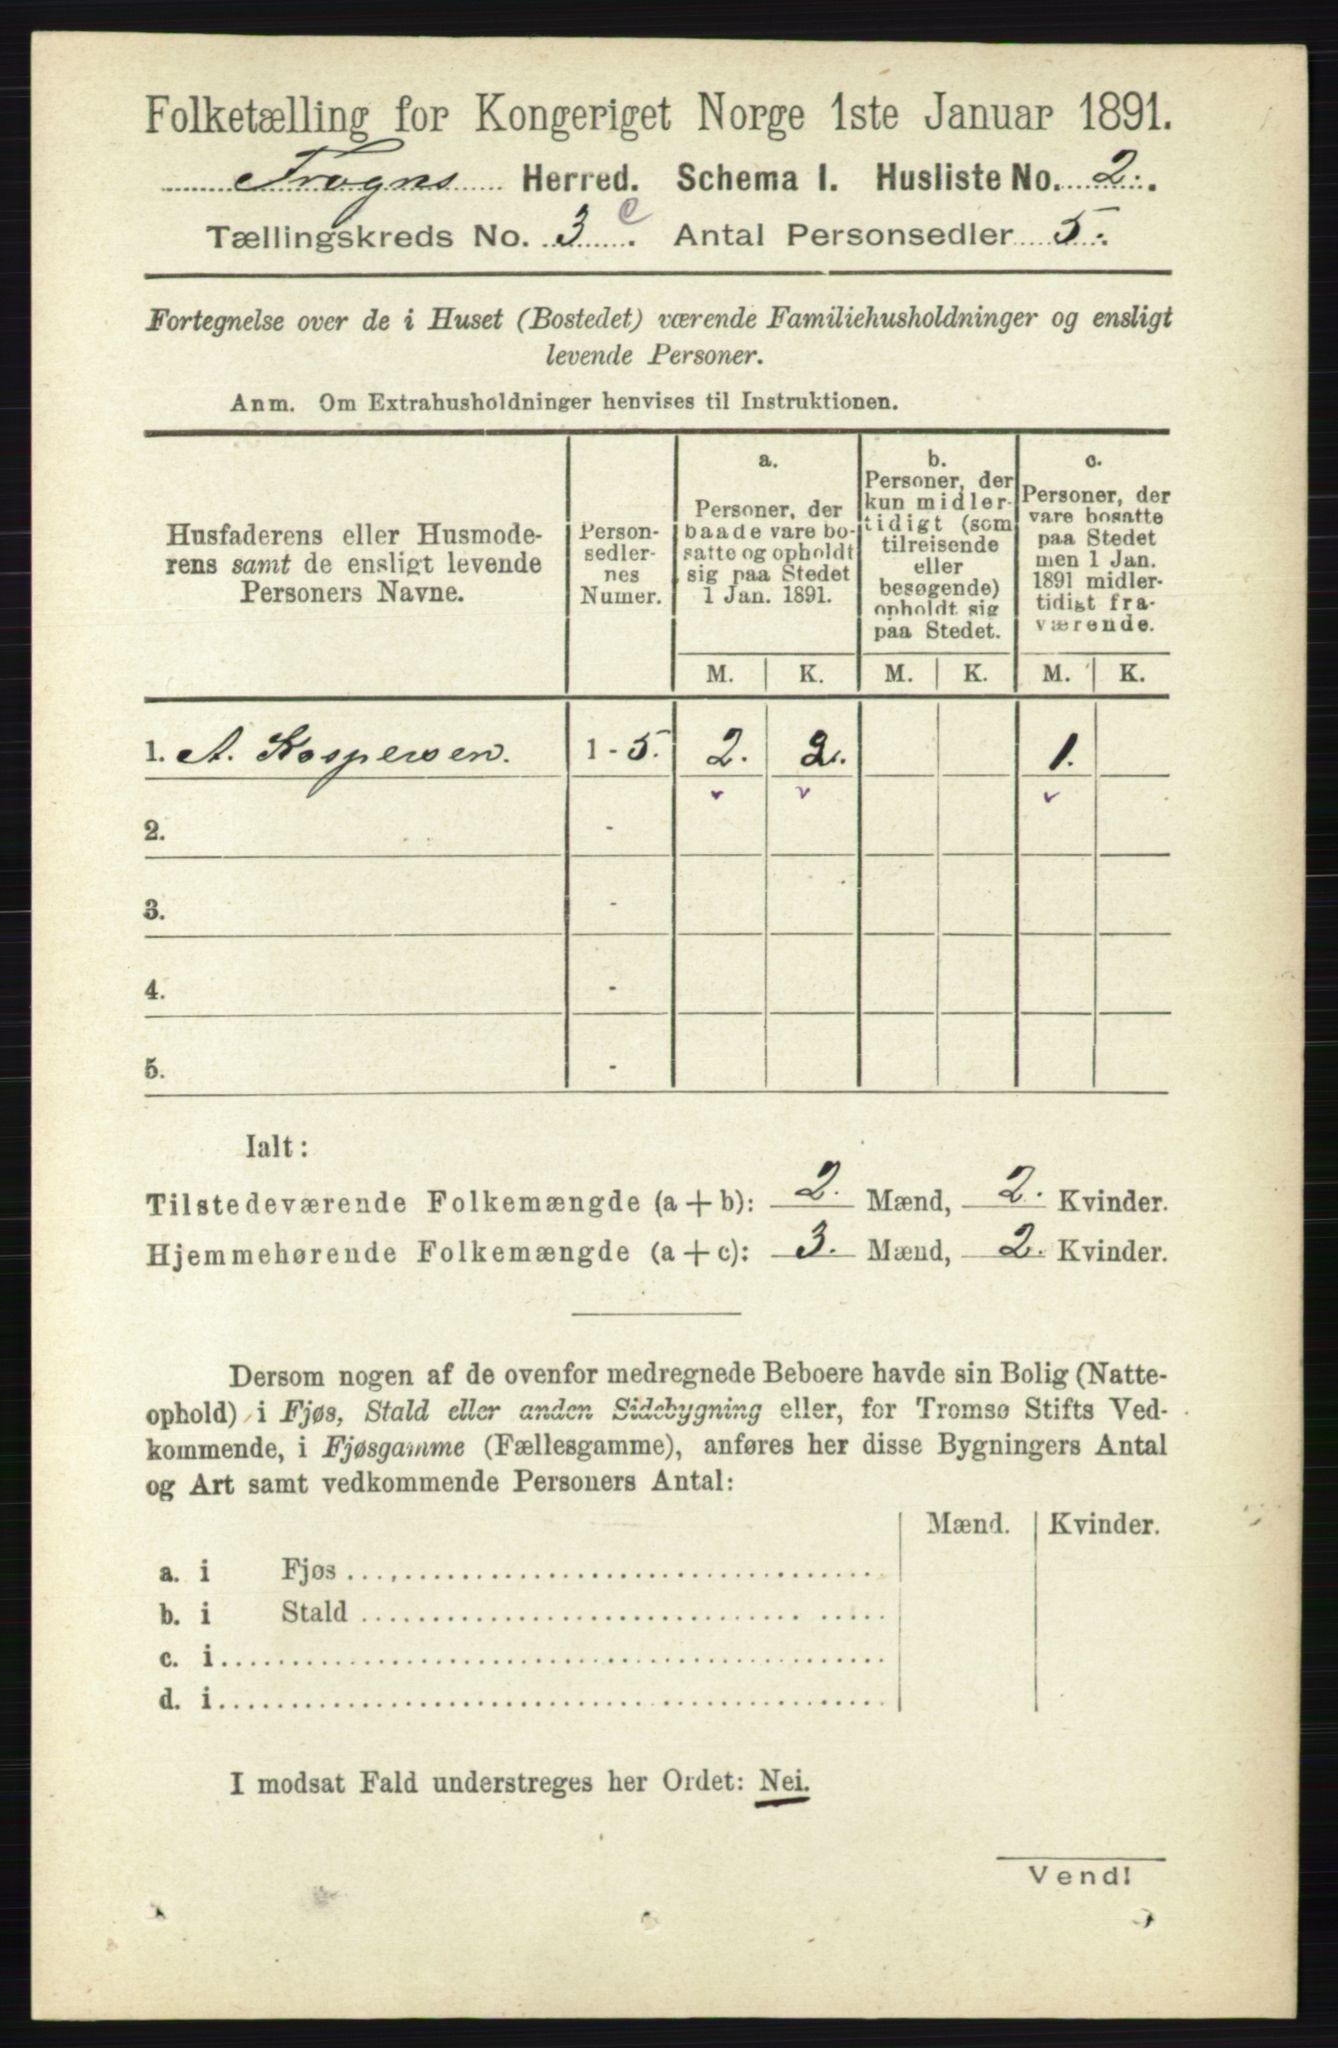 Folketælling for Kongeriget Norge 1ste Januar 1891.
Frogns Herred. Schema I. Husliste No. 2.
Tællingskreds No. 3 c. Antal Personsedler 5.
Fortegnelse over de i Huset (Bostedet) værende Familiehusholdninger og ensligt
levende Personer.
Anm. Om Extrahusholdninger henvises til Instruktionen.
Husfaderens eller Husmode-
rens samt de ensligt levende
Personers Navne.
Person-
sedler-
nes
Numer.
a.
Personer, der
baade vare bo-
satte og opholdt
sig paa Stedet
1 Jan. 1891.
b.
Personer, der
kun midler-
tidigt (som
tilreisende
eller
besøgende)
opholdt sig
paa Stedet.
c.
Personer, der
vare bosatte
paa Stedet
men 1 Jan.
1891 midler-
tidigt fra-
værende.
M. K. M. K. M. K.
1. A. Kospersen. 1 - 5. 2. 2. 1.
2. -
3. -
4. -
5. -
Ialt:
Tilstedeværende Folkemængde (a + b): 2. Mænd, 2. Kvinder.
Hjemmehørende Folkemængde (a + c): 3. Mænd, 2. Kvinder.
Dersom nogen af de ovenfor medregnede Beboere havde sin Bolig (Natte-
ophold) i Fjøs, Stald eller anden Sidebygning eller, for Tromsø Stifts Ved-
kommende, i Fjøsgamme (Fællesgamme), anføres her disse Bygningers Antal
og Art samt vedkommende Personers Antal:
Mænd. Kvinder.
a. i Fjøs
b. i Stald
c. i
d. i
I modsat Fald understreges her Ordet: Nei.
Vend!